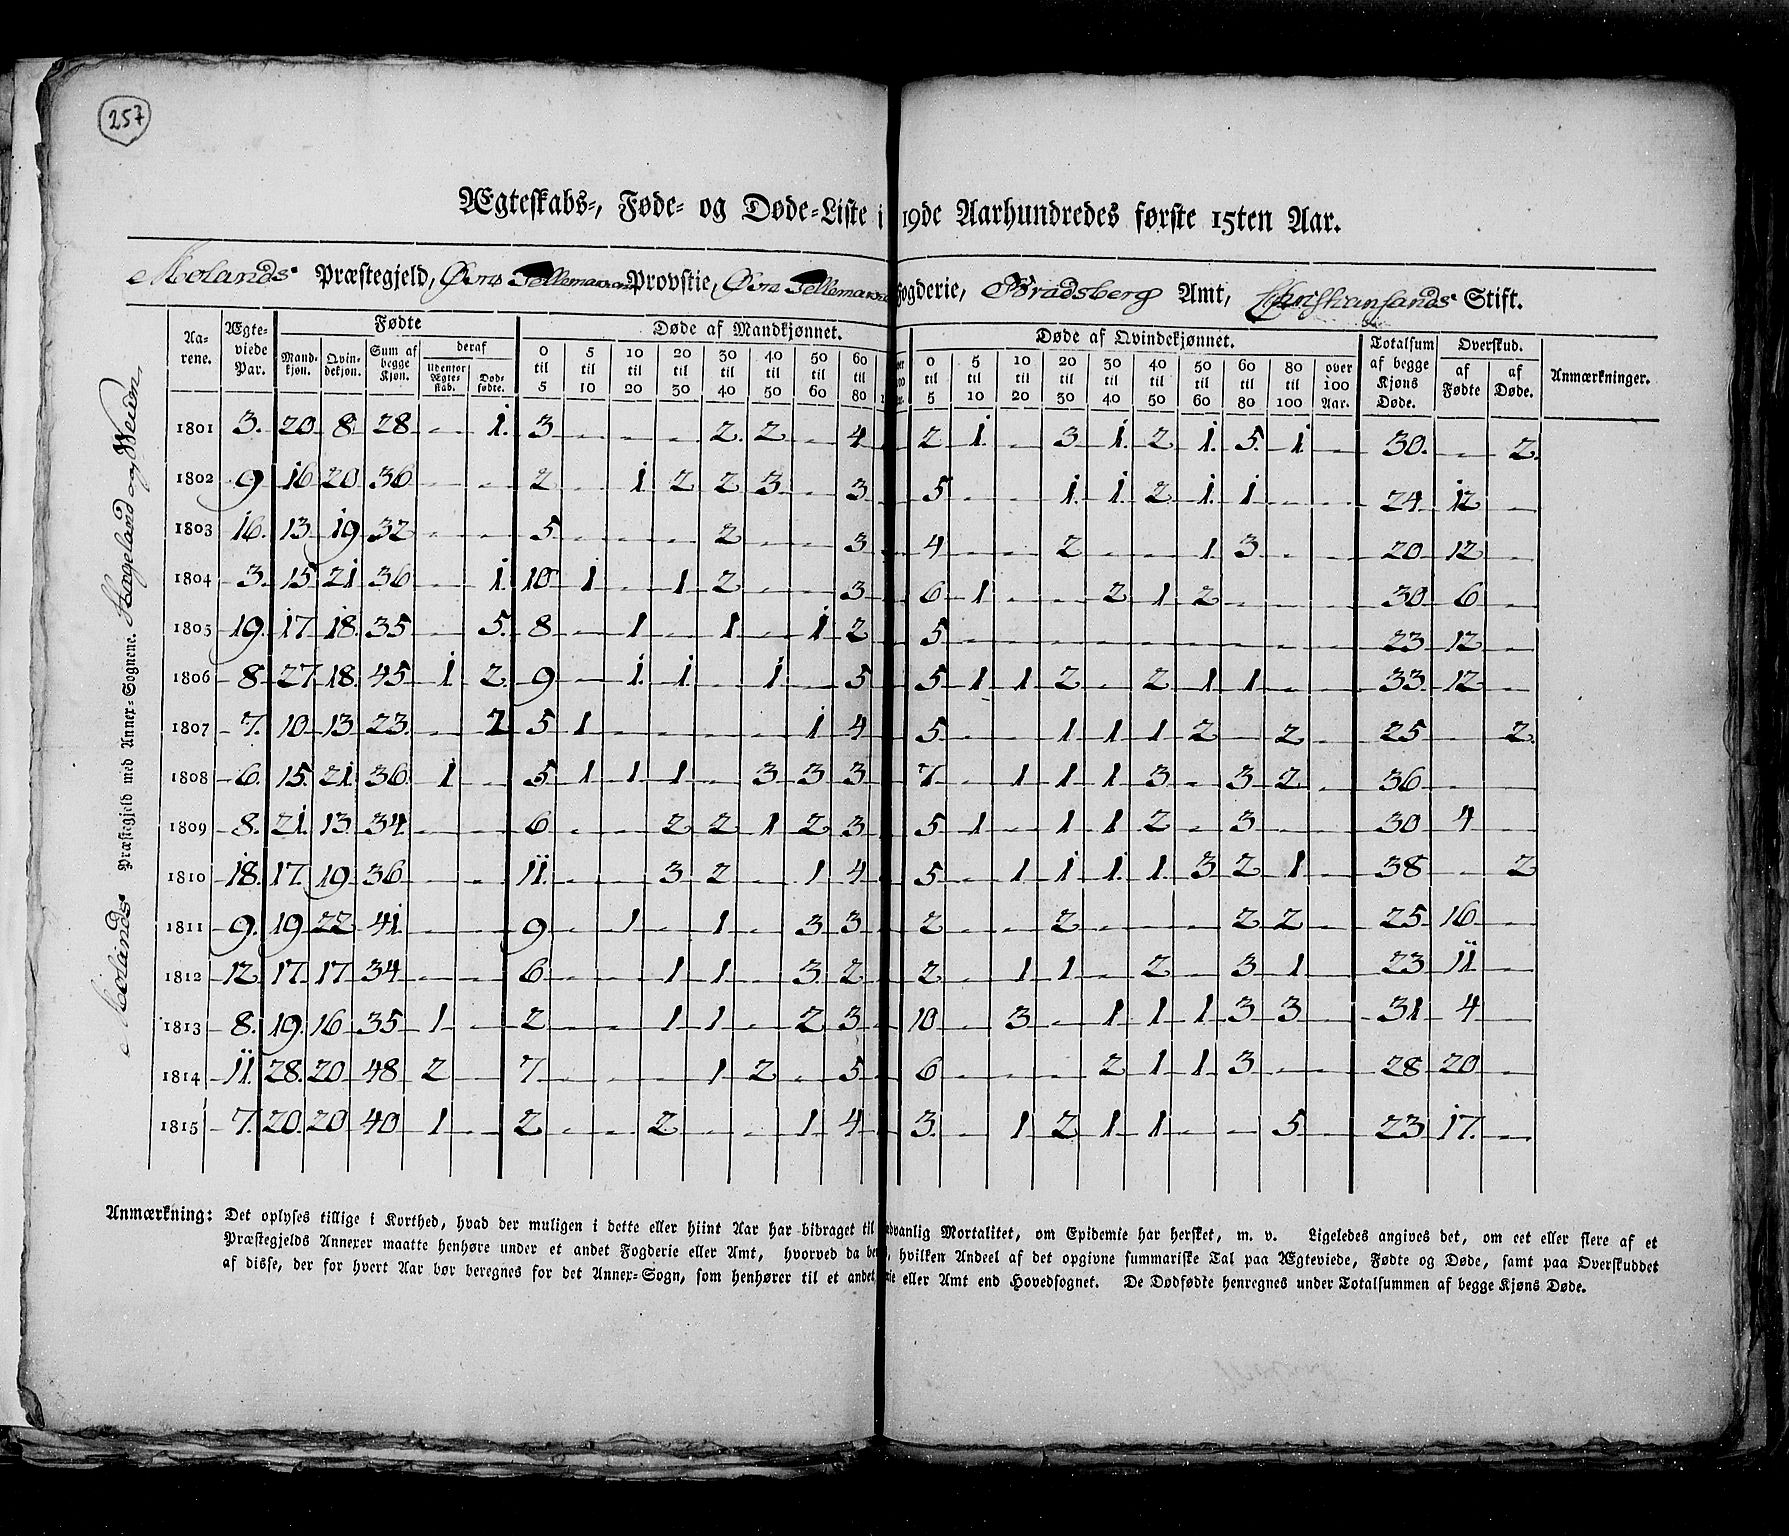 257
Ægteskabs-, Føde- og Døde-Liste i 19de Aarhundredes første 15ten Aar.
Molands Præstegjeld, Øvre Tellemarkens Provstie, Øvre Tellemarkens Fogderie, Bradsberg Amt, Christiansands Stift.
Molands Præstegjeld med Annex-Sognene Skageland og Weum.
Aarene. Ægteviede Par. Fødte Døde af Mandkjønnet. Døde af Qvindekjønnet. Totalsum af begge Kjøns Døde. Overskud. Anmærkninger.
Mandkjøn. Qvindekjøn. Sum af begge Kjøn. deraf udenfor Ægteskab. Dødfødte. 0 til 5 5 til 10 10 til 20 20 til 30 30 til 40 40 til 50 50 til 60 60 til 80 0 til 5 5 til 10 10 til 20 20 til 30 30 til 40 40 til 50 50 til 60 60 til 80 80 til 100 over 100 Aar. af Fødte af Døde.
1801 3. 20 8. 28 - 1. 3 - - - 2 2 - 4 2 1. - 3 1. 2 1. 5. 1 - 30. - 2.
1802 9 16 20 36 - - 2 - 1 2 2 3 - 3 5 - - 1. 1 2 1. 1 - - 24 12 -
1803 16. 13 19 32 - - 5 - - - 2 - - 3 4 - - 2 - - 1 3 - - 20 12 -
1804 3. 15 21 36 - 1. 10 1 - 1 2 - - 3 6 1 - - 2 1 2 - - - 30 6 -
1805 19. 17 18. 35 - 5. 8 - 1 - 1 - 1 2 5 - - - - - - - - - 23 12 -
1806 8 27 18. 45 1 2. 9 - 1. 1. - 1 - 5 5 1 1 2 - 2 1 1 - - 33. 12 -
1807 7. 10 13 23. - 2 5 1 - - - - 1 4 5 - - 1 1 1 2 - 2 - 25 - 2.
1808 6. 15. 21. 36 1 - 5 1 1 1 - 3 3 3 7 - 1 1 1 3 - 3 2 - 36 - -
1809 8. 21. 13 34 - - 6 - - 2 2 1 2 3 5 1 - 1 1 2 - 3 - - 30 4 -
1810 18. 17. 19 36 - - 11. - - 3 2 - 1 4 5 - 1 1 1. 1. 3 2 1 - 38 - 2
1811 9. 19 22 41 - - 9 - 1 - 1 - 3 3 2 - - 2 - - - 2 2 - 25 16 -
1812 12 17. 17 34 - - 6 - - 1 1 - 3. 2 2 - 1 1 - 2 - 3 1 - 23 11 -
1813 8. 19. 16 35 1 - 2 - - 1 1 - 2 3 10 - 3 - 1 1 1 3 3 - 31 4 -
1814 11. 28. 20 48 2 - 7 - - - 1 2 - 5 6 - - - 2 1 1 3 - - 28 20 -
1815 7. 20. 20 40 1 - 2 - - 2 - - 1 4 3. - 1 2 1 1 - - 5 - 23 17. -
Anmærkning: Det oplyses tillige i Korthed, hvad der muligen i dette eller hiint Aar har bidraget til Mortalitet, om Epidemie har hersket, m. v. Ligeledes angives det, om eet eller flere af et
Præstegjelds Annexer maatte henhøre under et andet Fogderie eller Amt, hvorved da hvilken Andeel af det opgivne summariske Tal paa Ægteviede, Fødte og Døde, samt paa Overskuddet
af disse, der for hvert Aar bør beregnes for det Annex-Sogn, som henhører til et andet eller Amt end Hovedsognet. De Dødfødte henregnes under Totalsummen af begge Kjøns Døde.